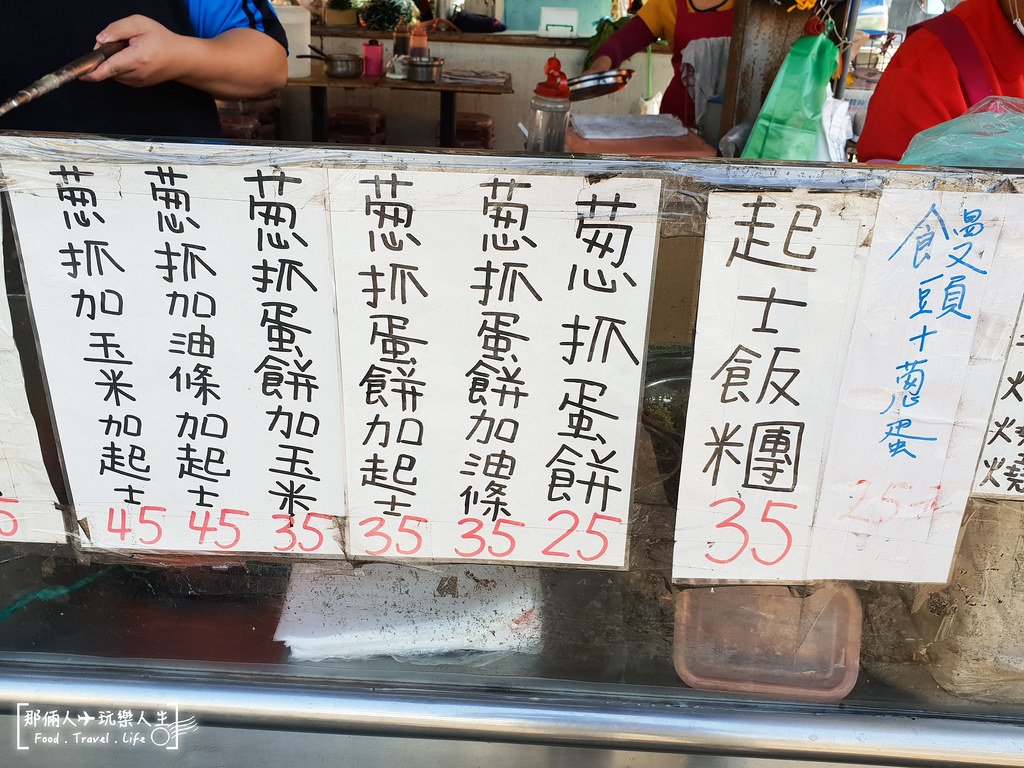 饅頭十蔥蛋
25元
起士飯糰
35
葱抓蛋餅
25
葱抓蛋餅加油條
35
葱抓蛋餅加起士
35
葱抓蛋餅加玉米
35
葱抓加油條加起士
45
葱抓加玉米加起士
45
那倆人玩樂人生
Food . Travel . Life